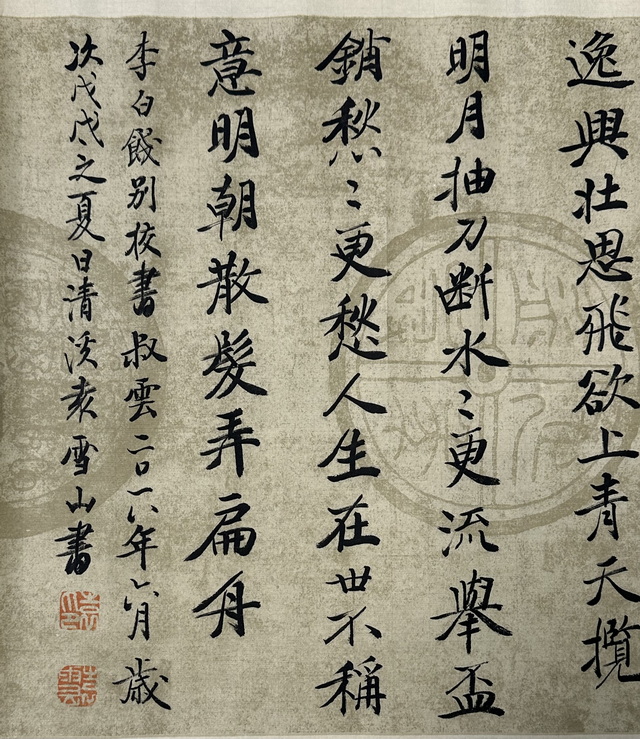 逸興壯思飛欲上青天攬
明月抽刀斷水〻更流舉盃
銷愁〻更愁人生在世不稱
意明朝散髮弄扁舟
李白餞別校書叔雲二〇一八年六月歲
次戊戌之夏日清溪袁雪山書